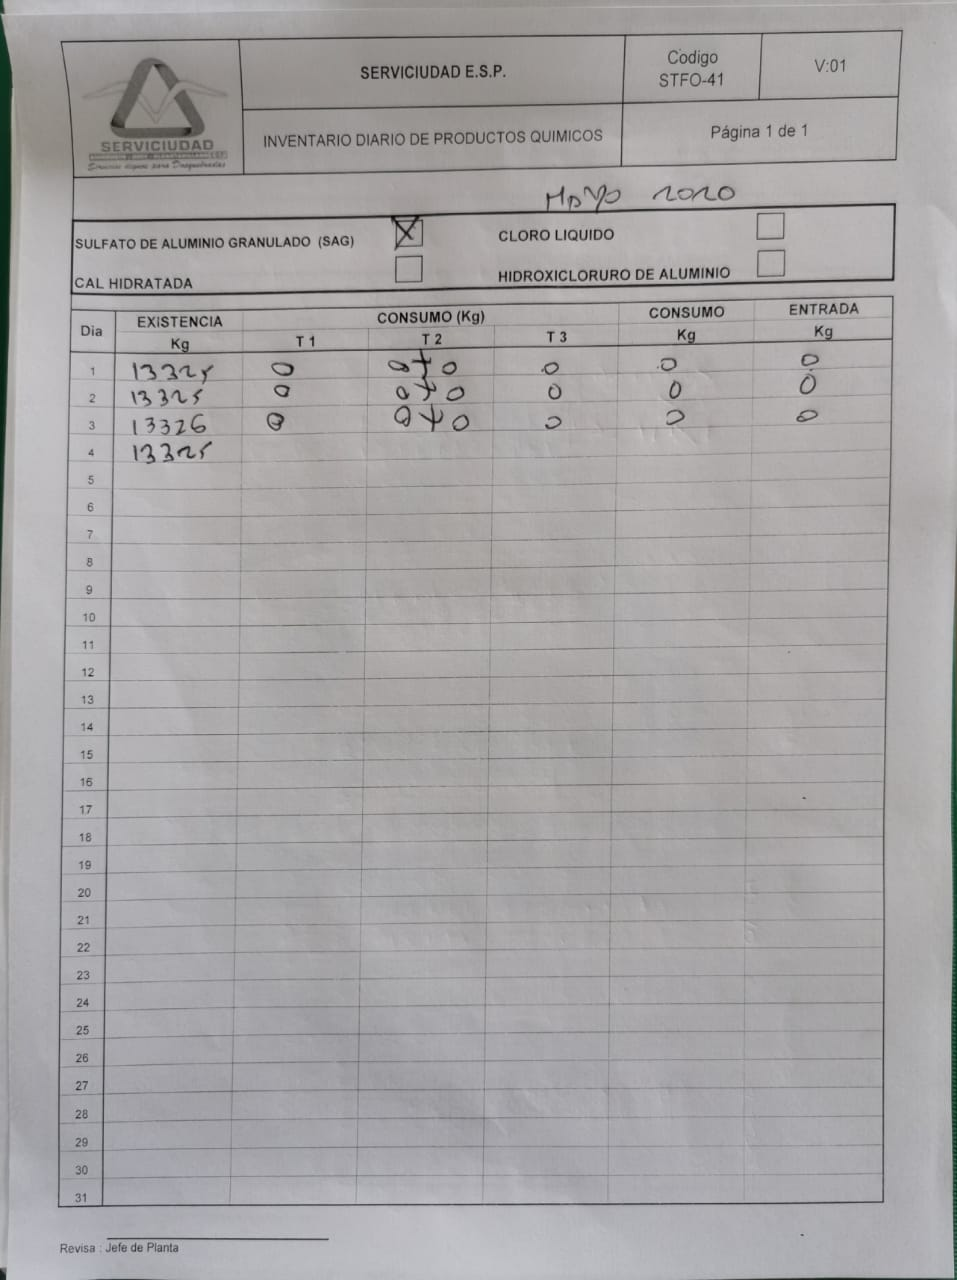 SERVICIUDAD E.S.P.
Codigo
STFO-41
V:01
SERVICIUDAD
INVENTARIO DIARIO DE PRODUCTOS QUIMICOS
Página 1 de 1
Mayo 2020
SULFATO DE ALUMINIO GRANULADO (SAG) X
CLORO LIQUIDO
CAL HIDRATADA
HIDROXICLORURO DE ALUMINIO
Dia EXISTENCIA Kg CONSUMO (Kg) CONSUMO Kg ENTRADA Kg
T 1 T 2 T 3
1 13325 0 0+0 0 0 0
2 13325 0 0+0 0 0 0
3 13326 0 0+0 0 0 0
4 13325
5
6
7
8
9
10
11
12
13
14
15
16
17
18
19
20
21
22
23
24
25
26
27
28
29
30
31
Revisa : Jefe de Planta